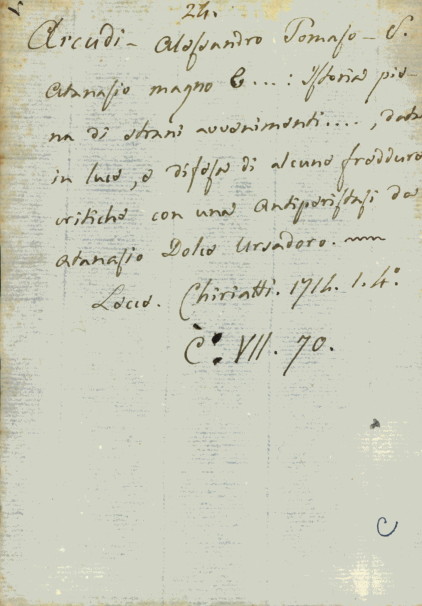 24.
Arcudi - Alessandro Tomaso - S.
Atanasio magno C....: istoria pie-
na di strani avvenimenti...., data
in luce, e difesa di alcune freddure
critiche con una Antiperistasi da
Atanasio Dolce Ursadoro.
Lecce. Chiriatti. 1714. 1. 4°.
C: VII. 70.
C